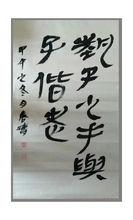 執子之手與
子偕老
甲午之冬月